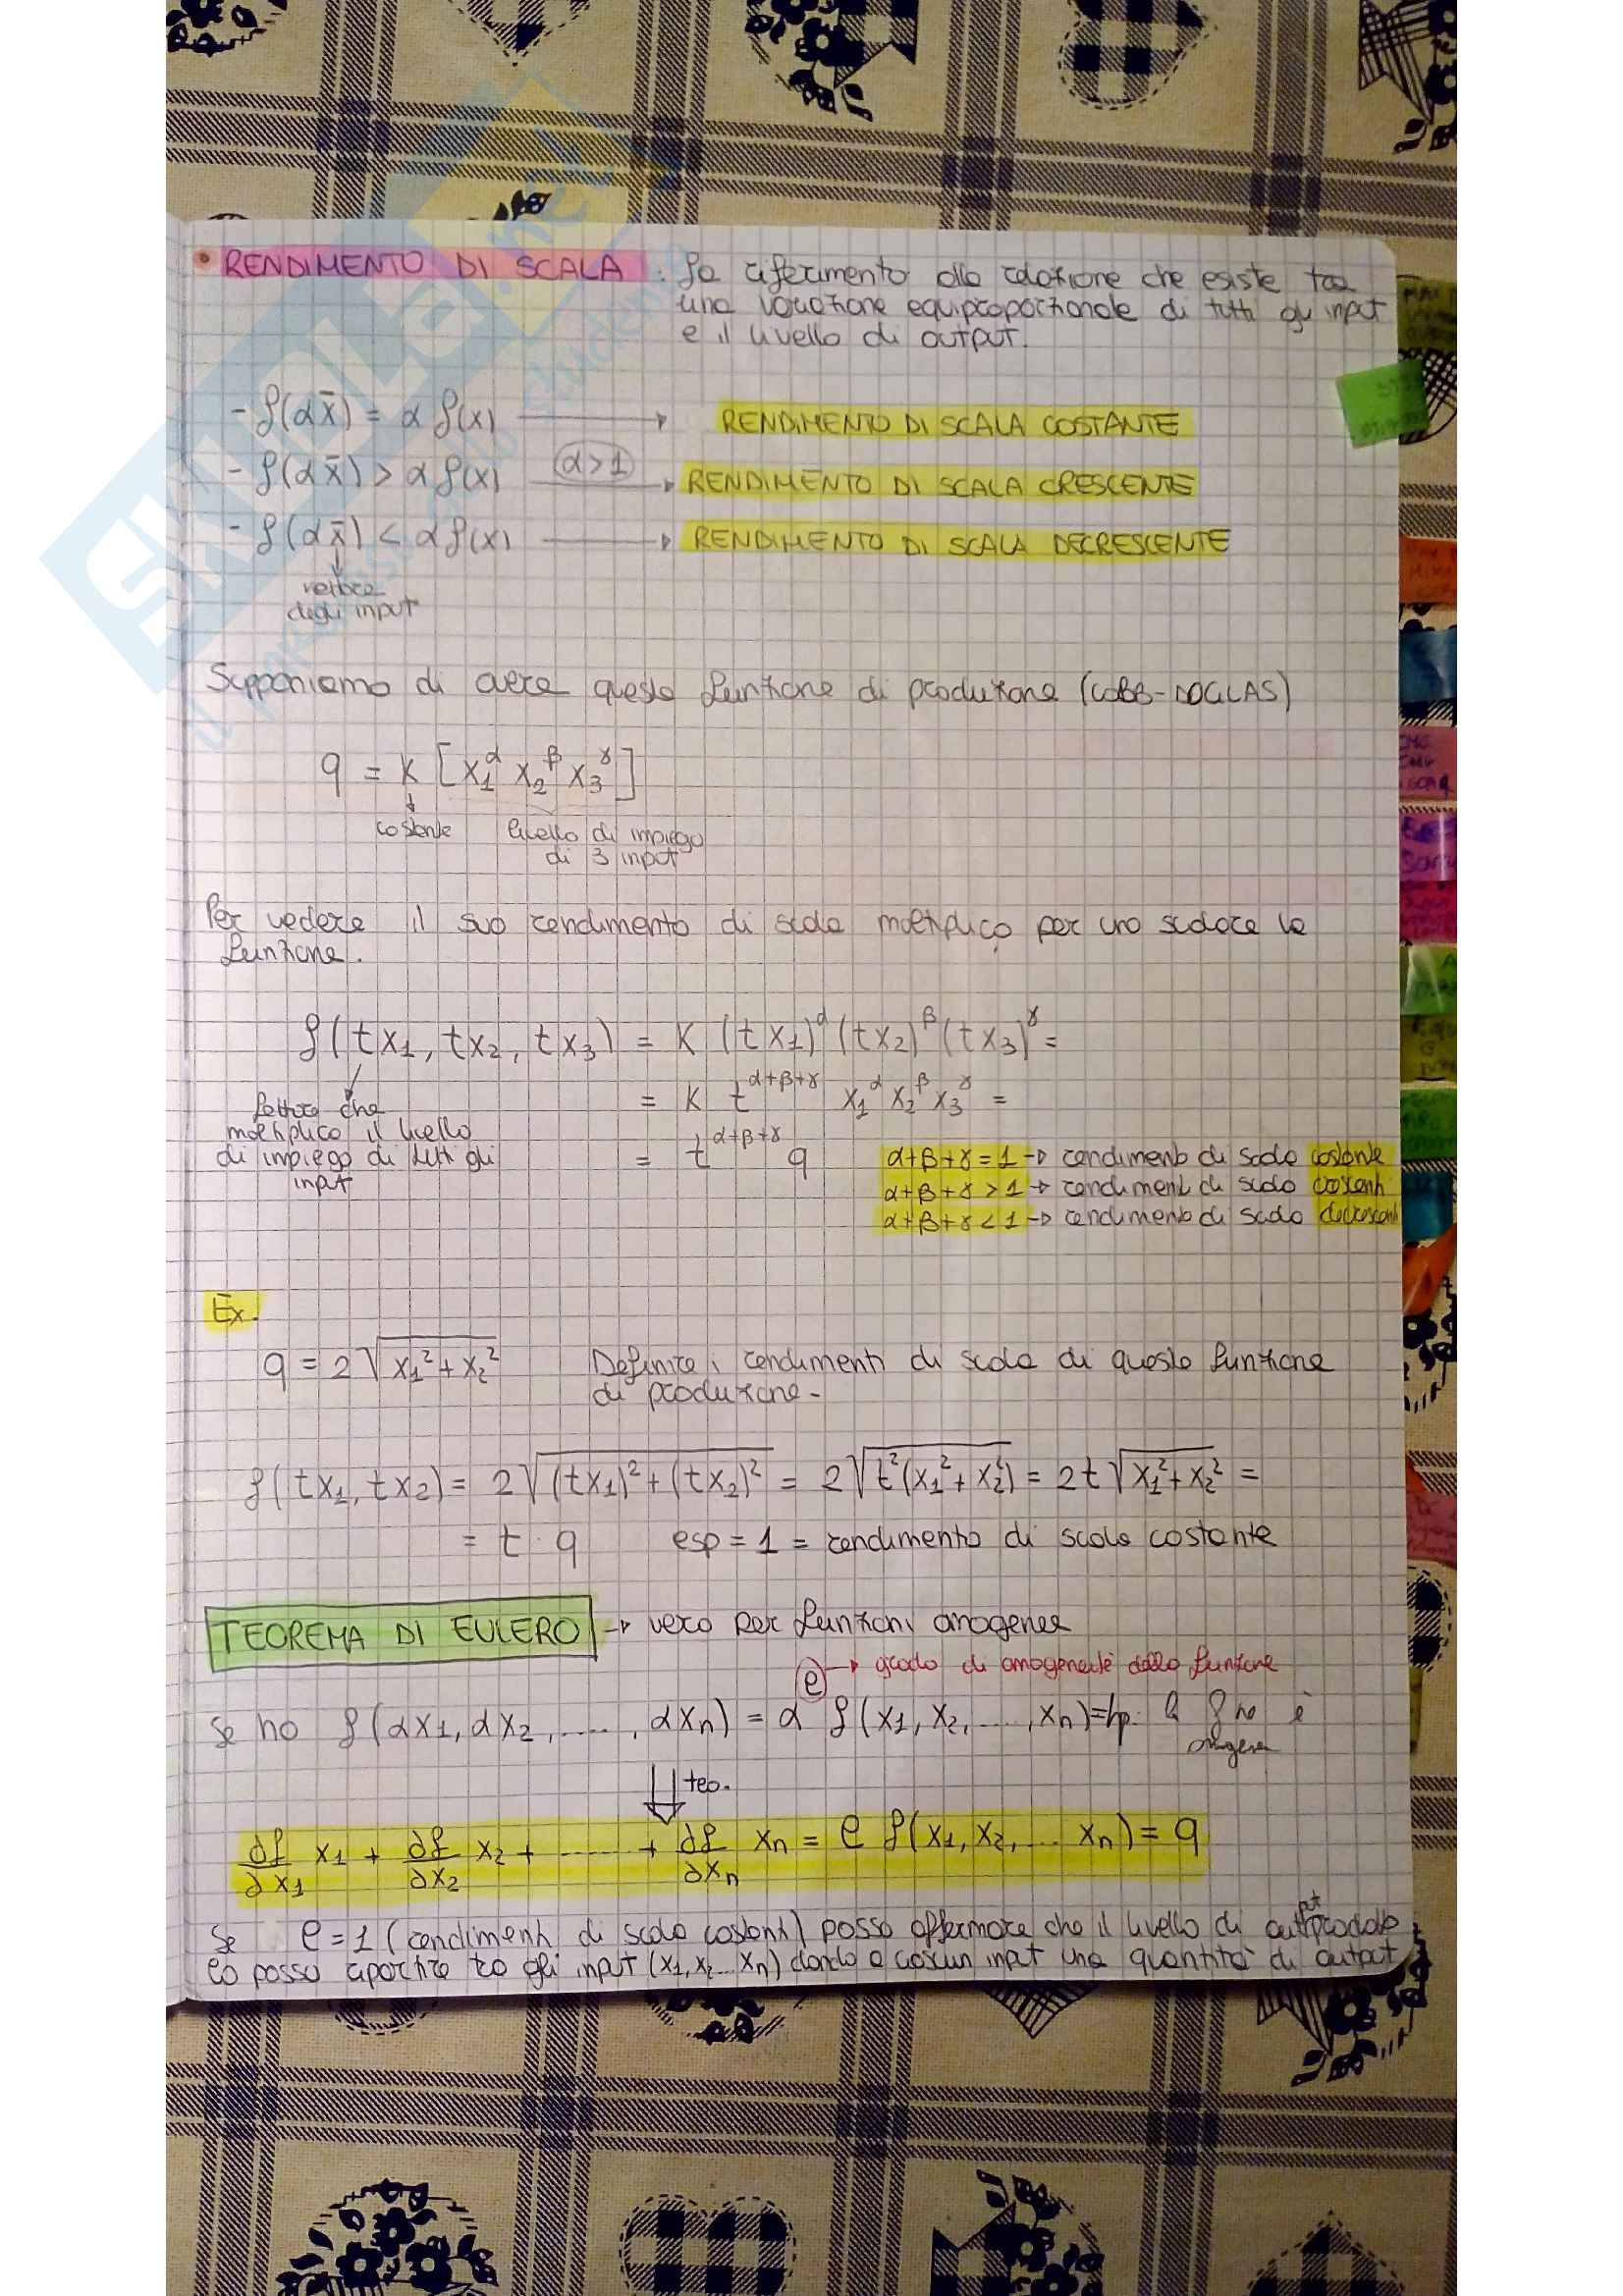 • RENDIMENTO DI SCALA : fa riferimento alla relazione che esiste tra
una variazione equiproporzionale di tutti gli input
e il livello di output.
- f(α x̄) = α f(x) → RENDIMENTO DI SCALA COSTANTE
- f(α x̄) > α f(x) (α>1) → RENDIMENTO DI SCALA CRESCENTE
- f(α x̄) < α f(x) → RENDIMENTO DI SCALA DECRESCENTE
vettore
degli input
Supponiamo di avere questa funzione di produzione (COBB-DOGLAS)
q = K [x₁^α x₂^β x₃^γ]
costante livello di impiego
di 3 input
Per vedere il suo rendimento di scala moltiplico per uno scalare la
funzione.
f(tx₁, tx₂, tx₃) = K (tx₁)^α (tx₂)^β (tx₃)^γ =
= K t^α+β+γ x₁^α x₂^β x₃^γ =
fattore che
moltiplica il livello
di impiego di tutti gli
input
= t^α+β+γ q
α+β+γ = 1 → rendimento di scala costante
α+β+γ > 1 → rendimenti di scala crescenti
α+β+γ < 1 → rendimento di scala decrescenti
Ex.
q = 2√x₁² + x₂² Definire i rendimenti di scala di questa funzione
di produzione -
f(tx₁, tx₂) = 2√(tx₁)² + (tx₂)² = 2√t²(x₁² + x₂²) = 2t√x₁² + x₂² =
= t · q esp = 1 = rendimento di scala costante
TEOREMA DI EULERO → vero per funzioni omogenee
e → grado di omogeneità della funzione
Se ho f(αx₁, αx₂, ...., αxn) = α^e f(x₁, x₂, ...., xn) = hp. la f ne è
omogenea
⇓ teo.
∂f/∂x₁ x₁ + ∂f/∂x₂ x₂ + ...... + ∂f/∂xn xn = e f(x₁, x₂, ... xn) = q
Se e = 1 (rendimenti di scala costanti) posso affermare che il livello di output prodotto
lo posso ripartire tra gli input (x₁, x₂ ... xn) dando a ciascun input una quantità di output
SKUOLA.net